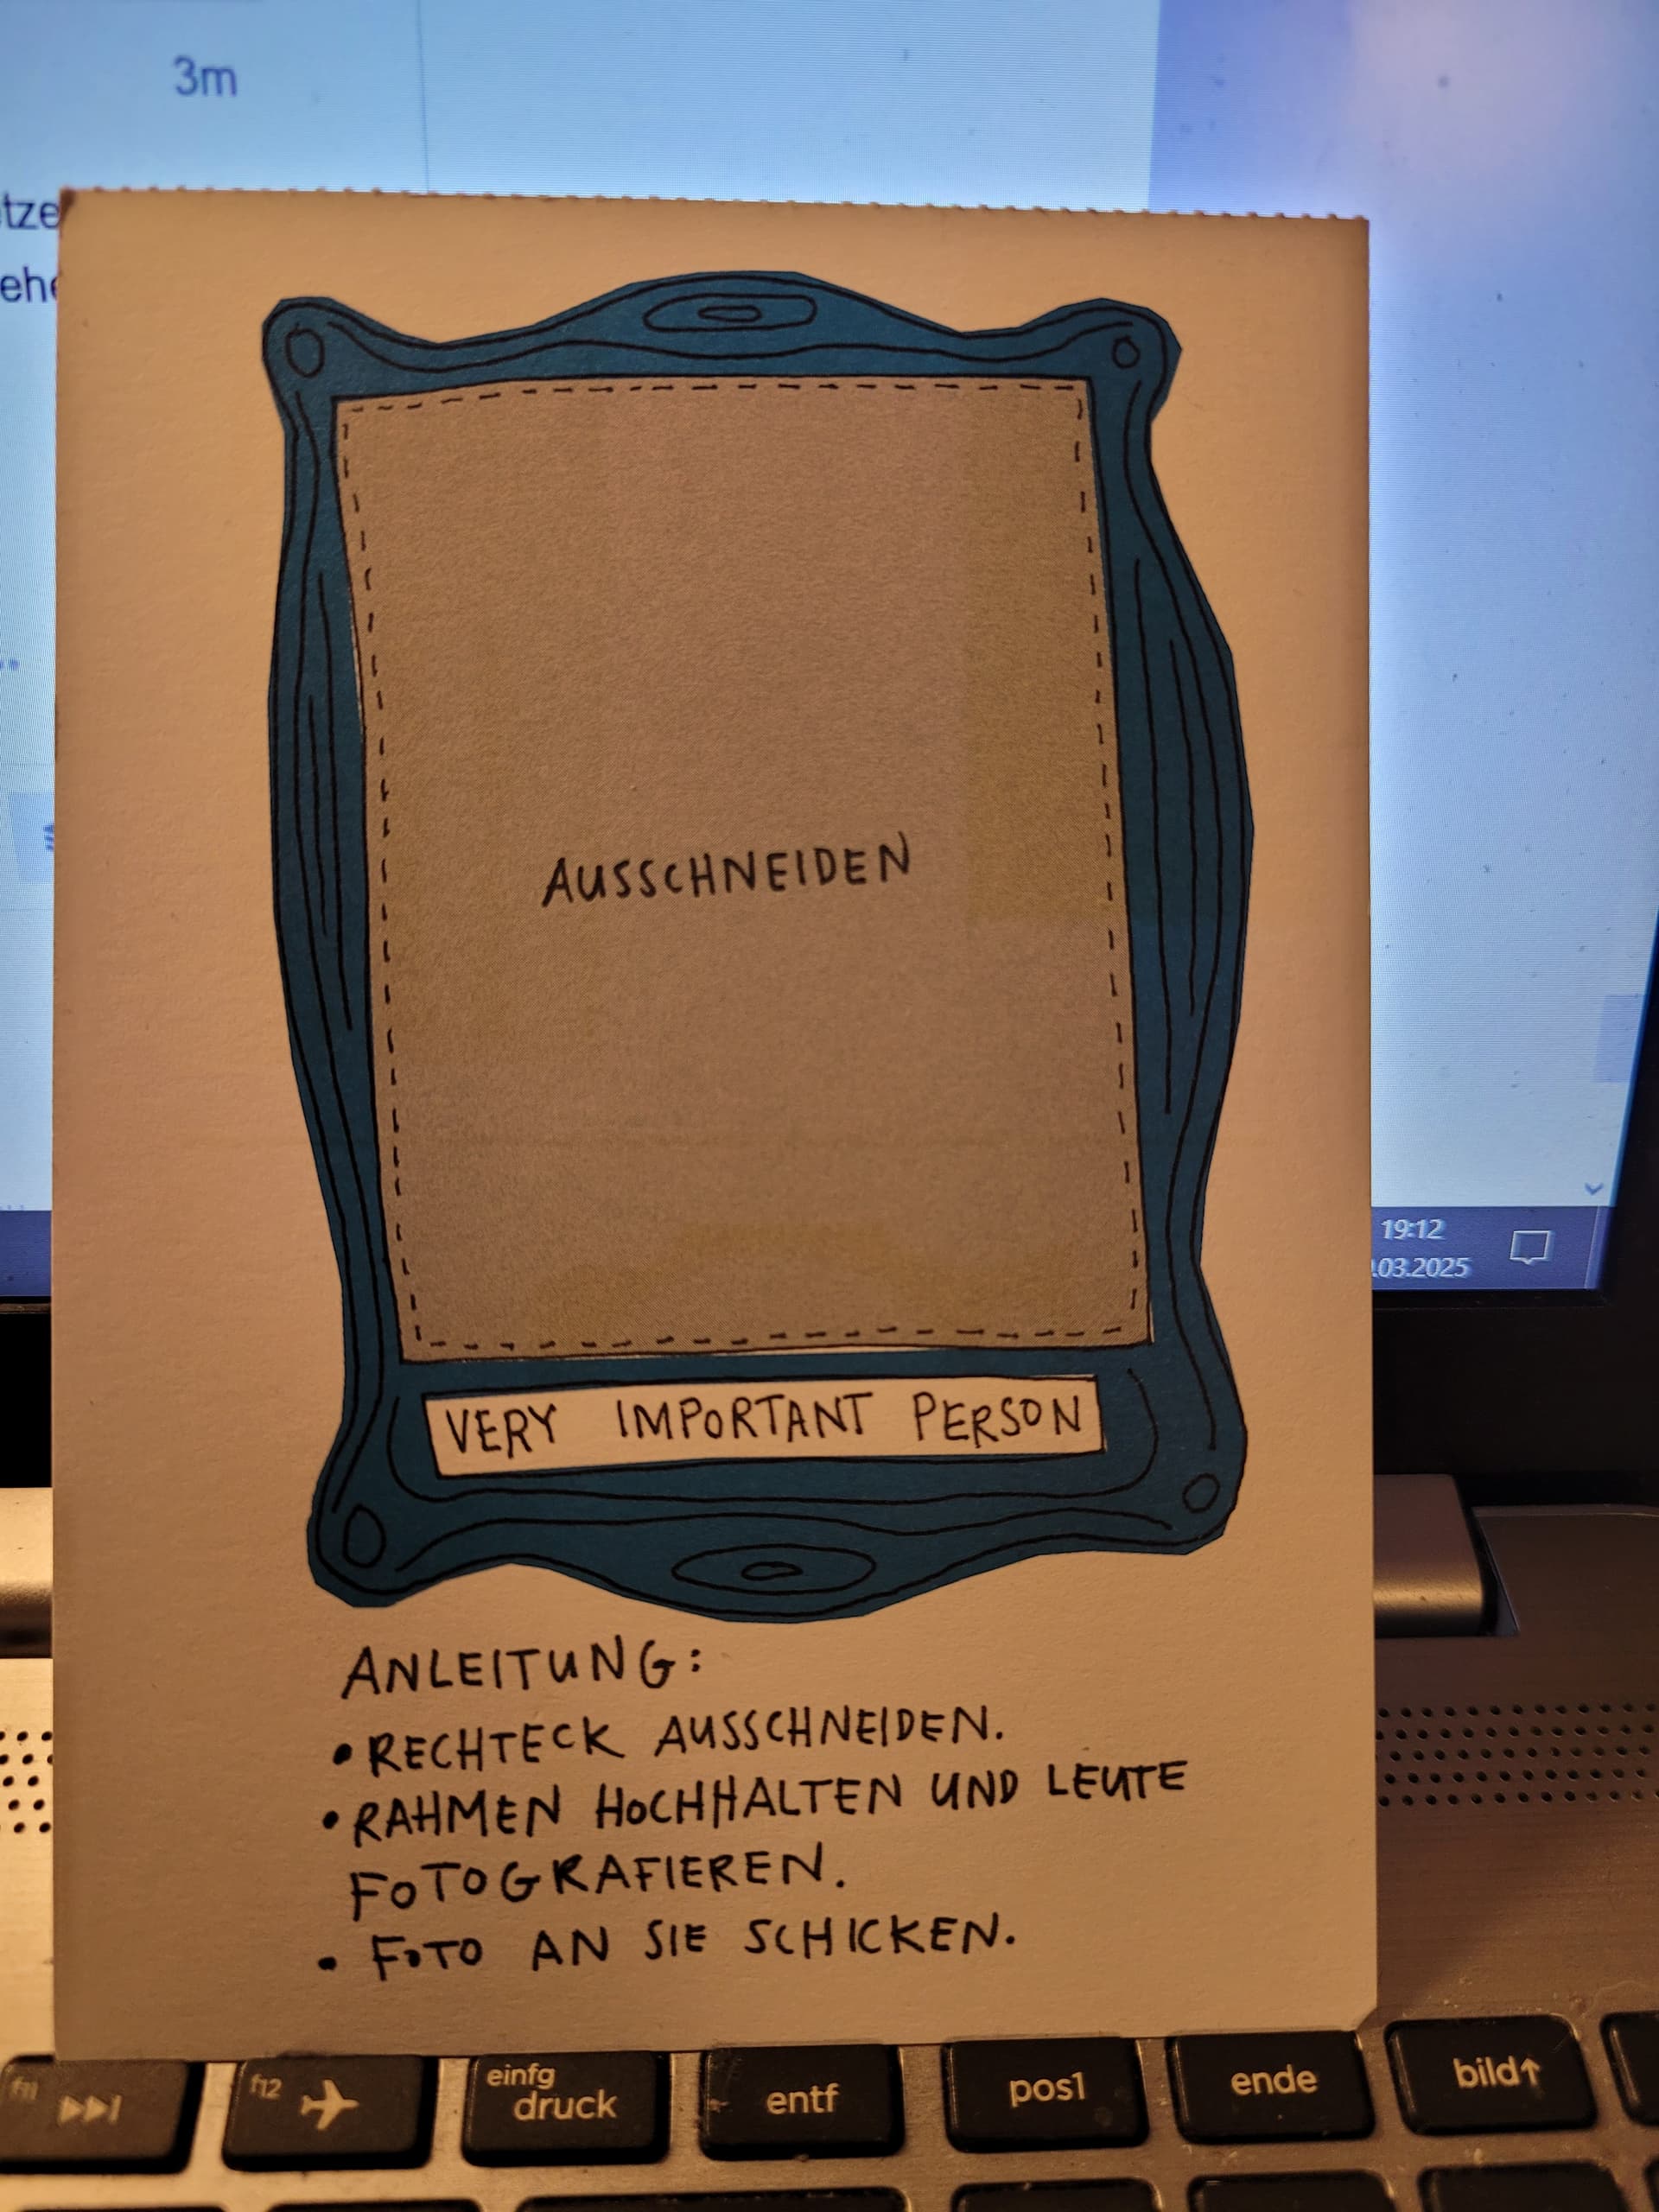 3m
AUSSCHNEIDEN
19:12
.03.2025
VERY IMPORTANT PERSON
ANLEITUNG:
• RECHTECK AUSSCHNEIDEN.
• RAHMEN HOCHHALTEN UND LEUTE
FOTOGRAFIEREN.
• FOTO AN SIE SCHICKEN.
f11
f12
einfg
druck
entf
pos1
ende
bild↑